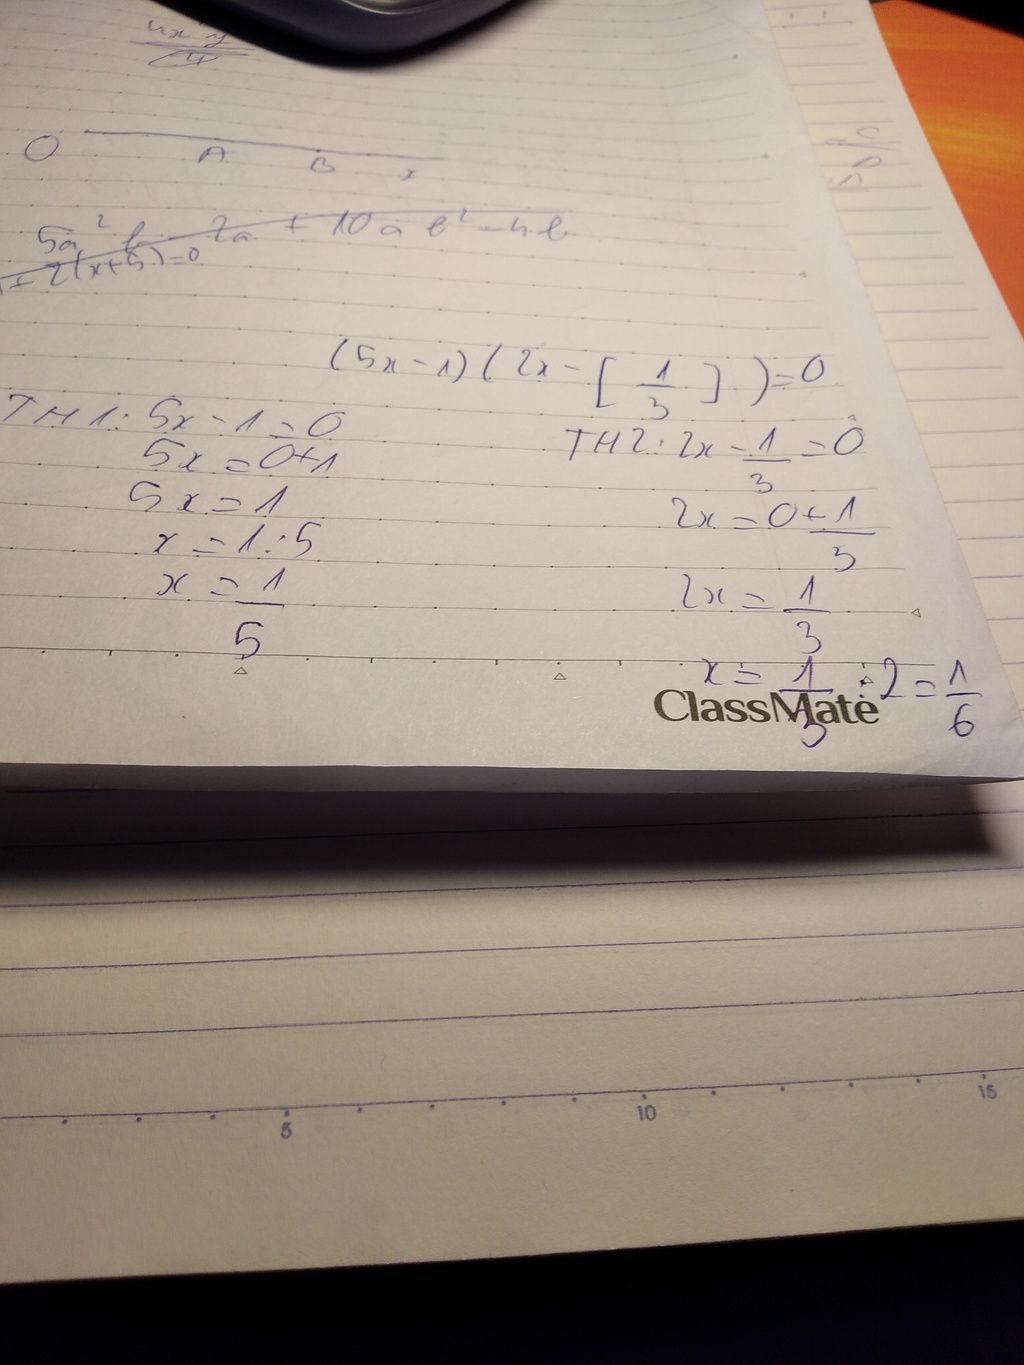 O A B x
5a² b 2a + 10a b² - 4b
+ 2(x+5)=0
(5x-1)(2x-[1/3])=0
TH1: 5x-1=0
5x=0+1
5x=1
x=1:5
x=1/5
TH2: 2x-1/3=0
2x=0+1/3
2x=1/3
x=1/3:2=1/6
ClassMate
5 10 15